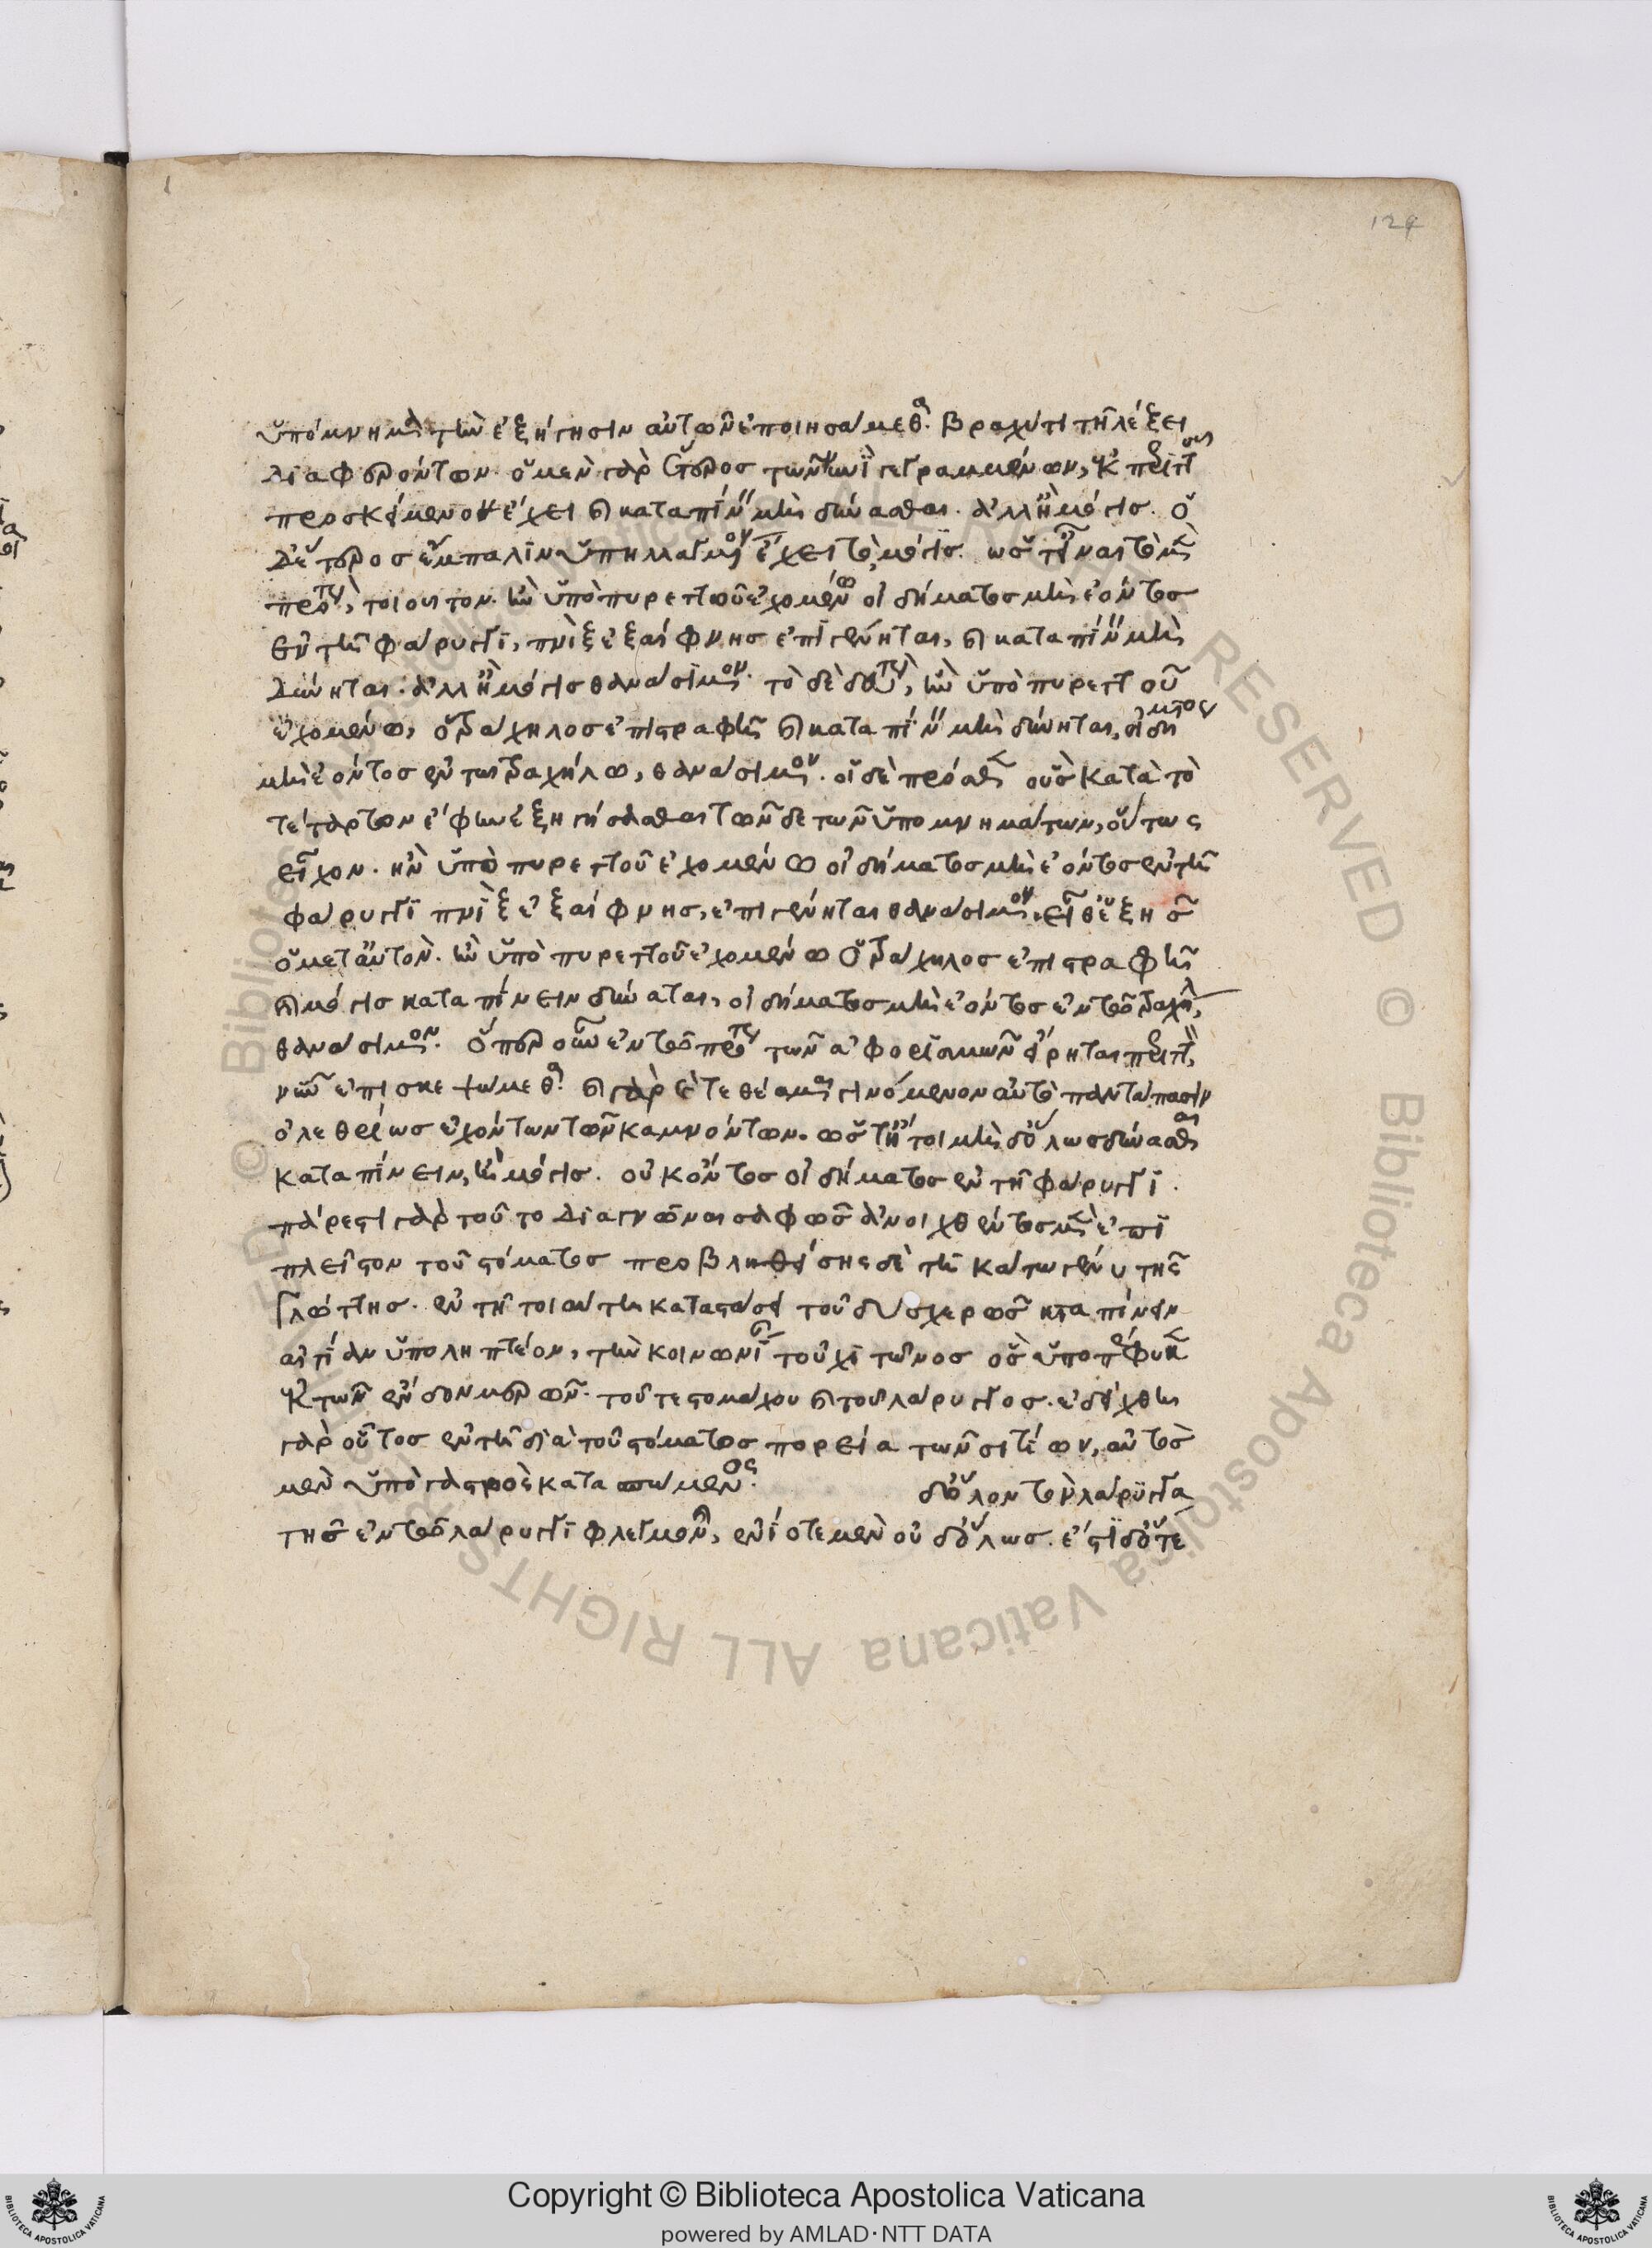 129
ὑπόμνημα τὴν ἐξήγησιν αὐτῶν ἐποιησάμεθα. βραχύ τι τῇ λέξει
διαφερόντων. ὁ μὲν γὰρ ἕτερος τῶν νυνὶ γεγραμμένων,
προσκείμενον ἔχει καὶ καταπίνειν μὴ δύνασθαι. ἀλλ' ἢ μόγις. ὁ
δεύτερος ἔμπαλιν ὑπηλλαγμένον ἔχει τὸ μόγις. ὡς εἶναι τὸ μὲν
πρότερον, τοιοῦτον. ἢν ὑπὸ πυρετοῦ ἐχομένῳ οἰδήματος μὴ ἐόντος
ἐν τῇ φάρυγγι, πνὶξ ἐξαίφνης ἐπιγένηται, καὶ καταπίνειν μὴ
δύνηται. ἀλλ' ἢ μόγις θανάσιμον. τὸ δὲ δεύτερον, ἢν ὑπὸ πυρετοῦ
ἐχομένῳ, ὁ τράχηλος ἐπιστραφῇ καὶ καταπίνειν μὴ δύνηται, οἰδήματος
μὴ ἐόντος ἐν τῷ τραχήλῳ, θανάσιμον. οἱ δὲ πρόσθεν οὓς κατὰ τὸ
τέταρτον ἔφην ἐξηγήσασθαι τῶνδε τῶν ὑπομνημάτων, οὕτως
εἶχον. ἢν ὑπὸ πυρετοῦ ἐχομένῳ οἰδήματος μὴ ἐόντος ἐν τῇ
φάρυγγι πνὶξ ἐξαίφνης, ἐπιγένηται θανάσιμον. εἶθ' ἑξῆς
ὁ μετ' αὐτόν. ἢν ὑπὸ πυρετοῦ ἐχομένῳ ὁ τράχηλος ἐπιστραφῇ
καὶ μόγις καταπίνειν δύναται, οἰδήματος μὴ ἐόντος ἐν τῷ τραχήλῳ,
θανάσιμον. ὅπερ οὖν ἐν τῷ προτέρῳ τῶν ἀφορισμῶν εἴρηται περιττὸν,
νῦν ἐπισκεψώμεθα. καὶ γὰρ ἐτεθεάμεθα γινόμενον αὐτὸ παντάπασιν
ὀλεθρίως ἐχόντων τῶν καμνόντων. ὡς ἤτοι μηδ' ὅλως δύνασθαι
καταπίνειν, ἢ μόγις. οὐκ ὄντος οἰδήματος ἐν τῇ φάρυγγι.
πάρεστι γὰρ τοῦτο διαγνῶναι σαφῶς ἀνοιχθέντος μὲν ἐπὶ
πλεῖστον τοῦ στόματος προβληθείσης δὲ τῇ κάτω γένυ τῆς
γλώττης. ἐν τῇ τοιαύτῃ καταστάσει τοῦ δυσχερῶς καταπίνειν
αἰτίαν ὑποληπτέον, τὴν κοινωνίαν τοῦ χιτῶνος ὃς ὑποπέφυκεν
ἐκ τῶν ἔνδον μερῶν. τοῦ τε στομάχου καὶ τοῦ λάρυγγος. ἐδείχθη
γὰρ οὗτος ἐν τῇ διὰ τοῦ στόματος πορείᾳ τῶν σιτίων, αὐτὸς
μὲν ὑπὸ γαστρὸς κατασπώμενος. δι' ὅλον τὸν λάρυγγα
τῆς ἐν τῷ λάρυγγι φλεγμονῆς, ἐνίοτε μὲν οὐδ' ὅλως. ἔστι δ' ὅτε
Copyright © Biblioteca Apostolica Vaticana
powered by AMLAD·NTT DATA